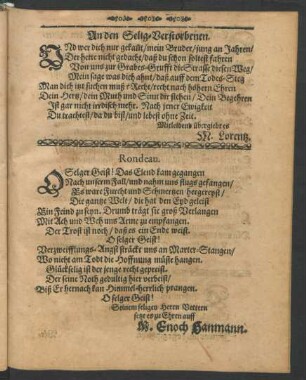 An den Selig-Verstorbenen.
UNd wer dich nur gekañt/mein Bruder/jung an Jahren/
Der hette nicht gedacht/daß du schon soltest fahren
Von uns zur Grabes-Grufft die Strasse diesen Weg/
Mein sage was dich ahnt/daß auff dem Todes-Steg
Man dich itzt suchen muß? Recht/recht nach höhern Ehren
Dein Hertz/dein Muth und Sinn dir stehen/Dein Begehren
Ist gar nicht irrdisch mehr. Nach jener Ewigkeit
Du trachtest/da du bist/und lebest ohne Zeit.
Mitleidend übergiebt es
M. Lorentz.
Rondeau.
O Selger Geist! Das Elend kam gegangen
Nach unserm Fall/und nahm uns flugs gefangen/
Es ware Furcht und Schmertzen hergereyst/
Die gantze Welt/die hat den Eyd geleist
Ihn Feind zu seyn. Drumb trägt sie groß Verlangen
Mit Ach und Weh uns Arme zu empfangen.
Der Trost ist noch/daß es ein Ende weist.
O selger Geist!
Verzweifflungs-Angst strickt uns an Marter-Stangen/
Wo nicht am Todt die Hoffnung müste hangen.
Glückselig ist der jenge recht gepreist.
Der seine Noth gedultig hier verbeist/
Biß Er hernach kan Himmel-herrlich prangen.
O selger Geist!
Seinem seligen Herrn Vettern
setzt es zu Ehren auff
M. Enoch Hanmann.